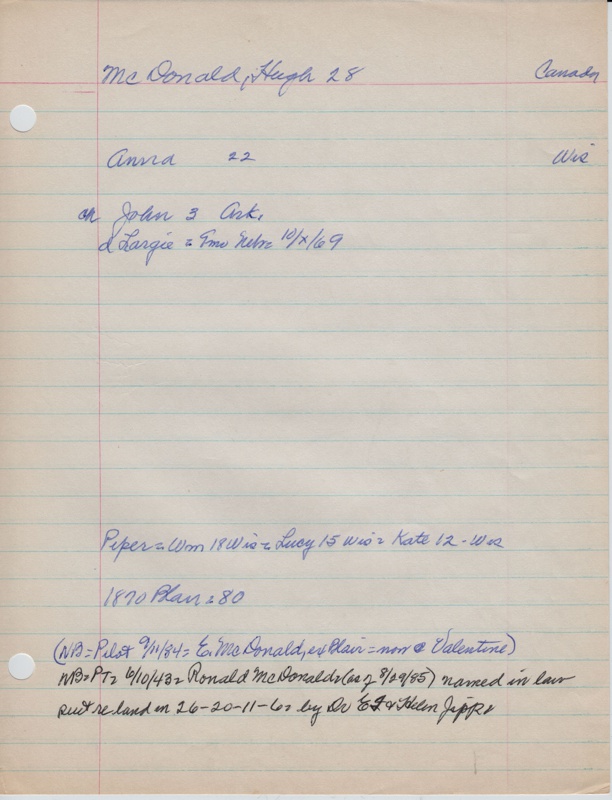 McDonald, Hugh 28 Canada
Anna 22 Wis
ch John 3 Ark.
d Largie = 5mo Nebr 10/x/69
Piper = Wm 18 Wis = Lucy 15 Wis = Kate 12 - Wis
1870 Blair = 80
(NB = Pilot 9/11/84 = E. McDonald, ex Blair = now @ Valentine)
NB = PT = 6/10/43 = Ronald McDonald = (as of 8/29/85) named in law
suit re land in 26-20-11-6 = by Dr E J & Helen